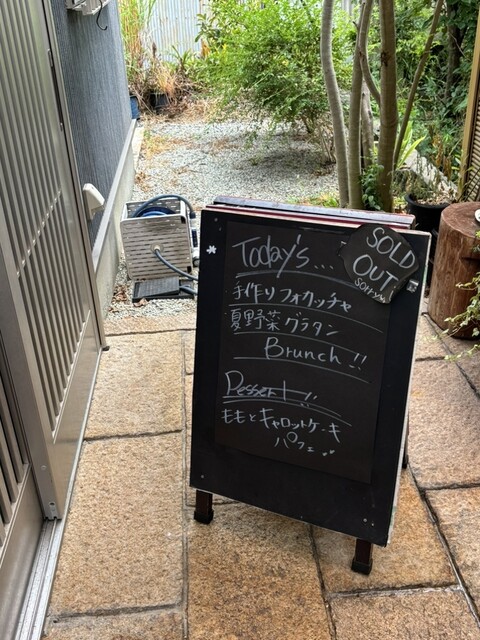 Today's...
SOLD
OUT
sorry
手作りフォカッチャ
夏野菜グラタン
Brunch!!
Dessert!!
ももとキャロットケーキ
パフェ